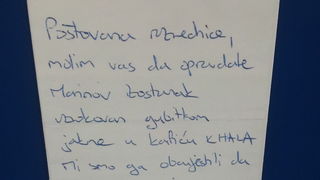 Poštovana razrednice,
molim vas da opravdate
Marinov izostanak
uzrokovan gubitkom
jakne u kafiću KHALA
Mi smo ga obavijestili da